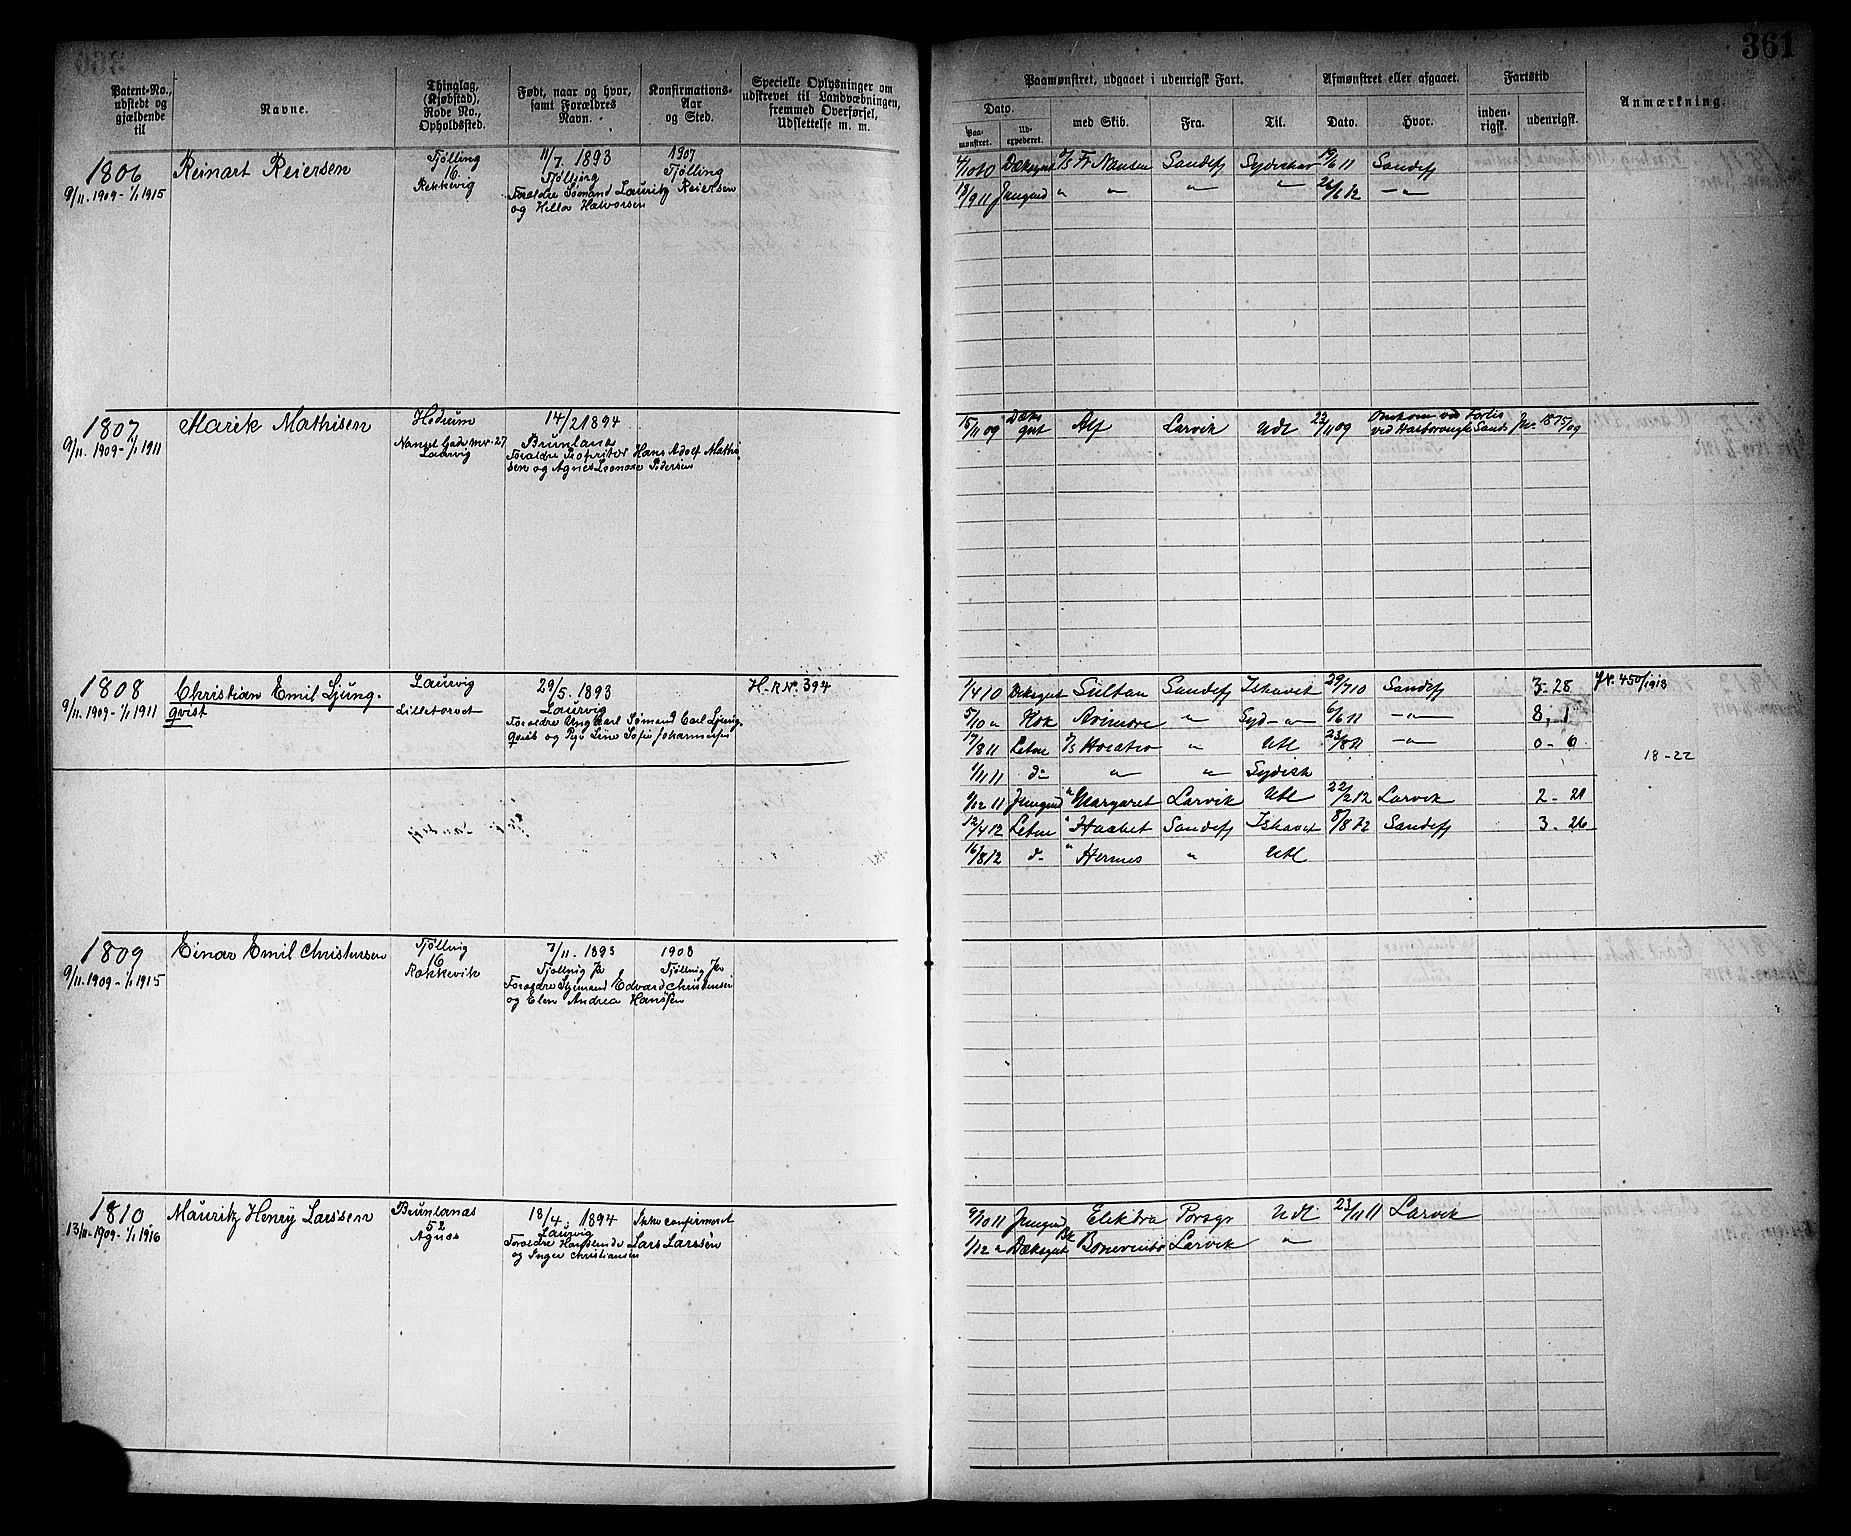 361
Patent-No., udstedt og gjældende til
Navne.
Thinglag, (Kjøbstad), Rode No., Opholdssted.
Født, naar og hvor, samt Forældres Navn.
Konfirmations-Aar og Sted.
Specielle Oplysninger om udskrevet til Landvæbningen, fremmed Overførsel, Udslettelse m. m.
Paamønstret, udgaaet i udenrigsk Fart.
Afmønstret eller afgaaet.
Fartstid
Anmærkning.
Dato.
Paa-mønstret.
Ud-expederet.
med Skib.
Fra.
Til.
Dato.
Hvor.
inden-rigsk.
udenrigsk.
1806
9/11. 1909 - 1/1 1915
Reinart Reiersen
Tjølling
16.
Rekkevig
11/7. 1893
Tjølling
Forældre Sømand Lauritz Reiersen
og Hella Halvorsen
1907
Tjølling
4/10 10 Dæksgut T/s Fr. Nansen Sandefj Sydishav 19/6 11 Sandefj
18/9 11 Jungmd " " " " 26/6 12 - " -
1807
9/11. 1909 - 1/1 1911
Marik Mathisen
Hedrum
Nansel Gade nr. 27
Laurvig
14/2 1894
Brunlanæs
Hans Adolf Mathi-
sen og Agnes Leonore Pedersen
15/11 09 Dæks gut Alf Larvik Udl 22/11 09 Omkom ved Forlis
ved Hasborough Sands Jnr. 1875/09
1808
9/11. 1909 - 1/1 1911
Christian Emil Ljung-
qvist
Laurvig
Lilletorvet
29/5. 1893
Laurvig
Forældre Ungkarl Sømand Carl Ljung-
qvist og Pige Line Sofie Johannesen
H-R No. 394
1/4 10 Dæksgut Sultan Sandefj Ishavet 29/7 10 Sandefj 3 - 28 JNr. 450/1913
5/10 " Kok Avimore " Syd - " - 6/6 11 - " - 8, 1
7/8 11 Letm T/s Horatio " Utl 23/8 11 - " - 0 - 0
18 - 22
1/11 11 do " " Sydish
9/12 11 Jungmd " Margaret Larvik Utl 22/2 12 Larvik 2 - 21
12/4 12 Letm " Haabet Sandefj Ishavet 8/8 12 Sandefj 3 - 26
16/8 12 do " Hermes " Utl
1809
9/11. 1909 - 1/1 1915
Einar Emil Christensen
Tjøllvig
16
Rakkevik
7/11. 1893
Tjøllvig
Forældre Sømand Edvard Christensen
og Elen Andrea Hanssen
1908
Tjøllvig
1810
13/11. 1909 - 1/1 1916
Mauritz Henry Larssen
Brunlanæs
52
Agnæs
18/4. 1894
Laurvig
Forældre Lars Larssen
og Inger Christiansen
Ikke confirmeret
9/10 11 Jungmd Elektra Porsgr Udl 23/11 11 Larvik
1/12 " Dæksgut Bk Bonaventa Larvik "